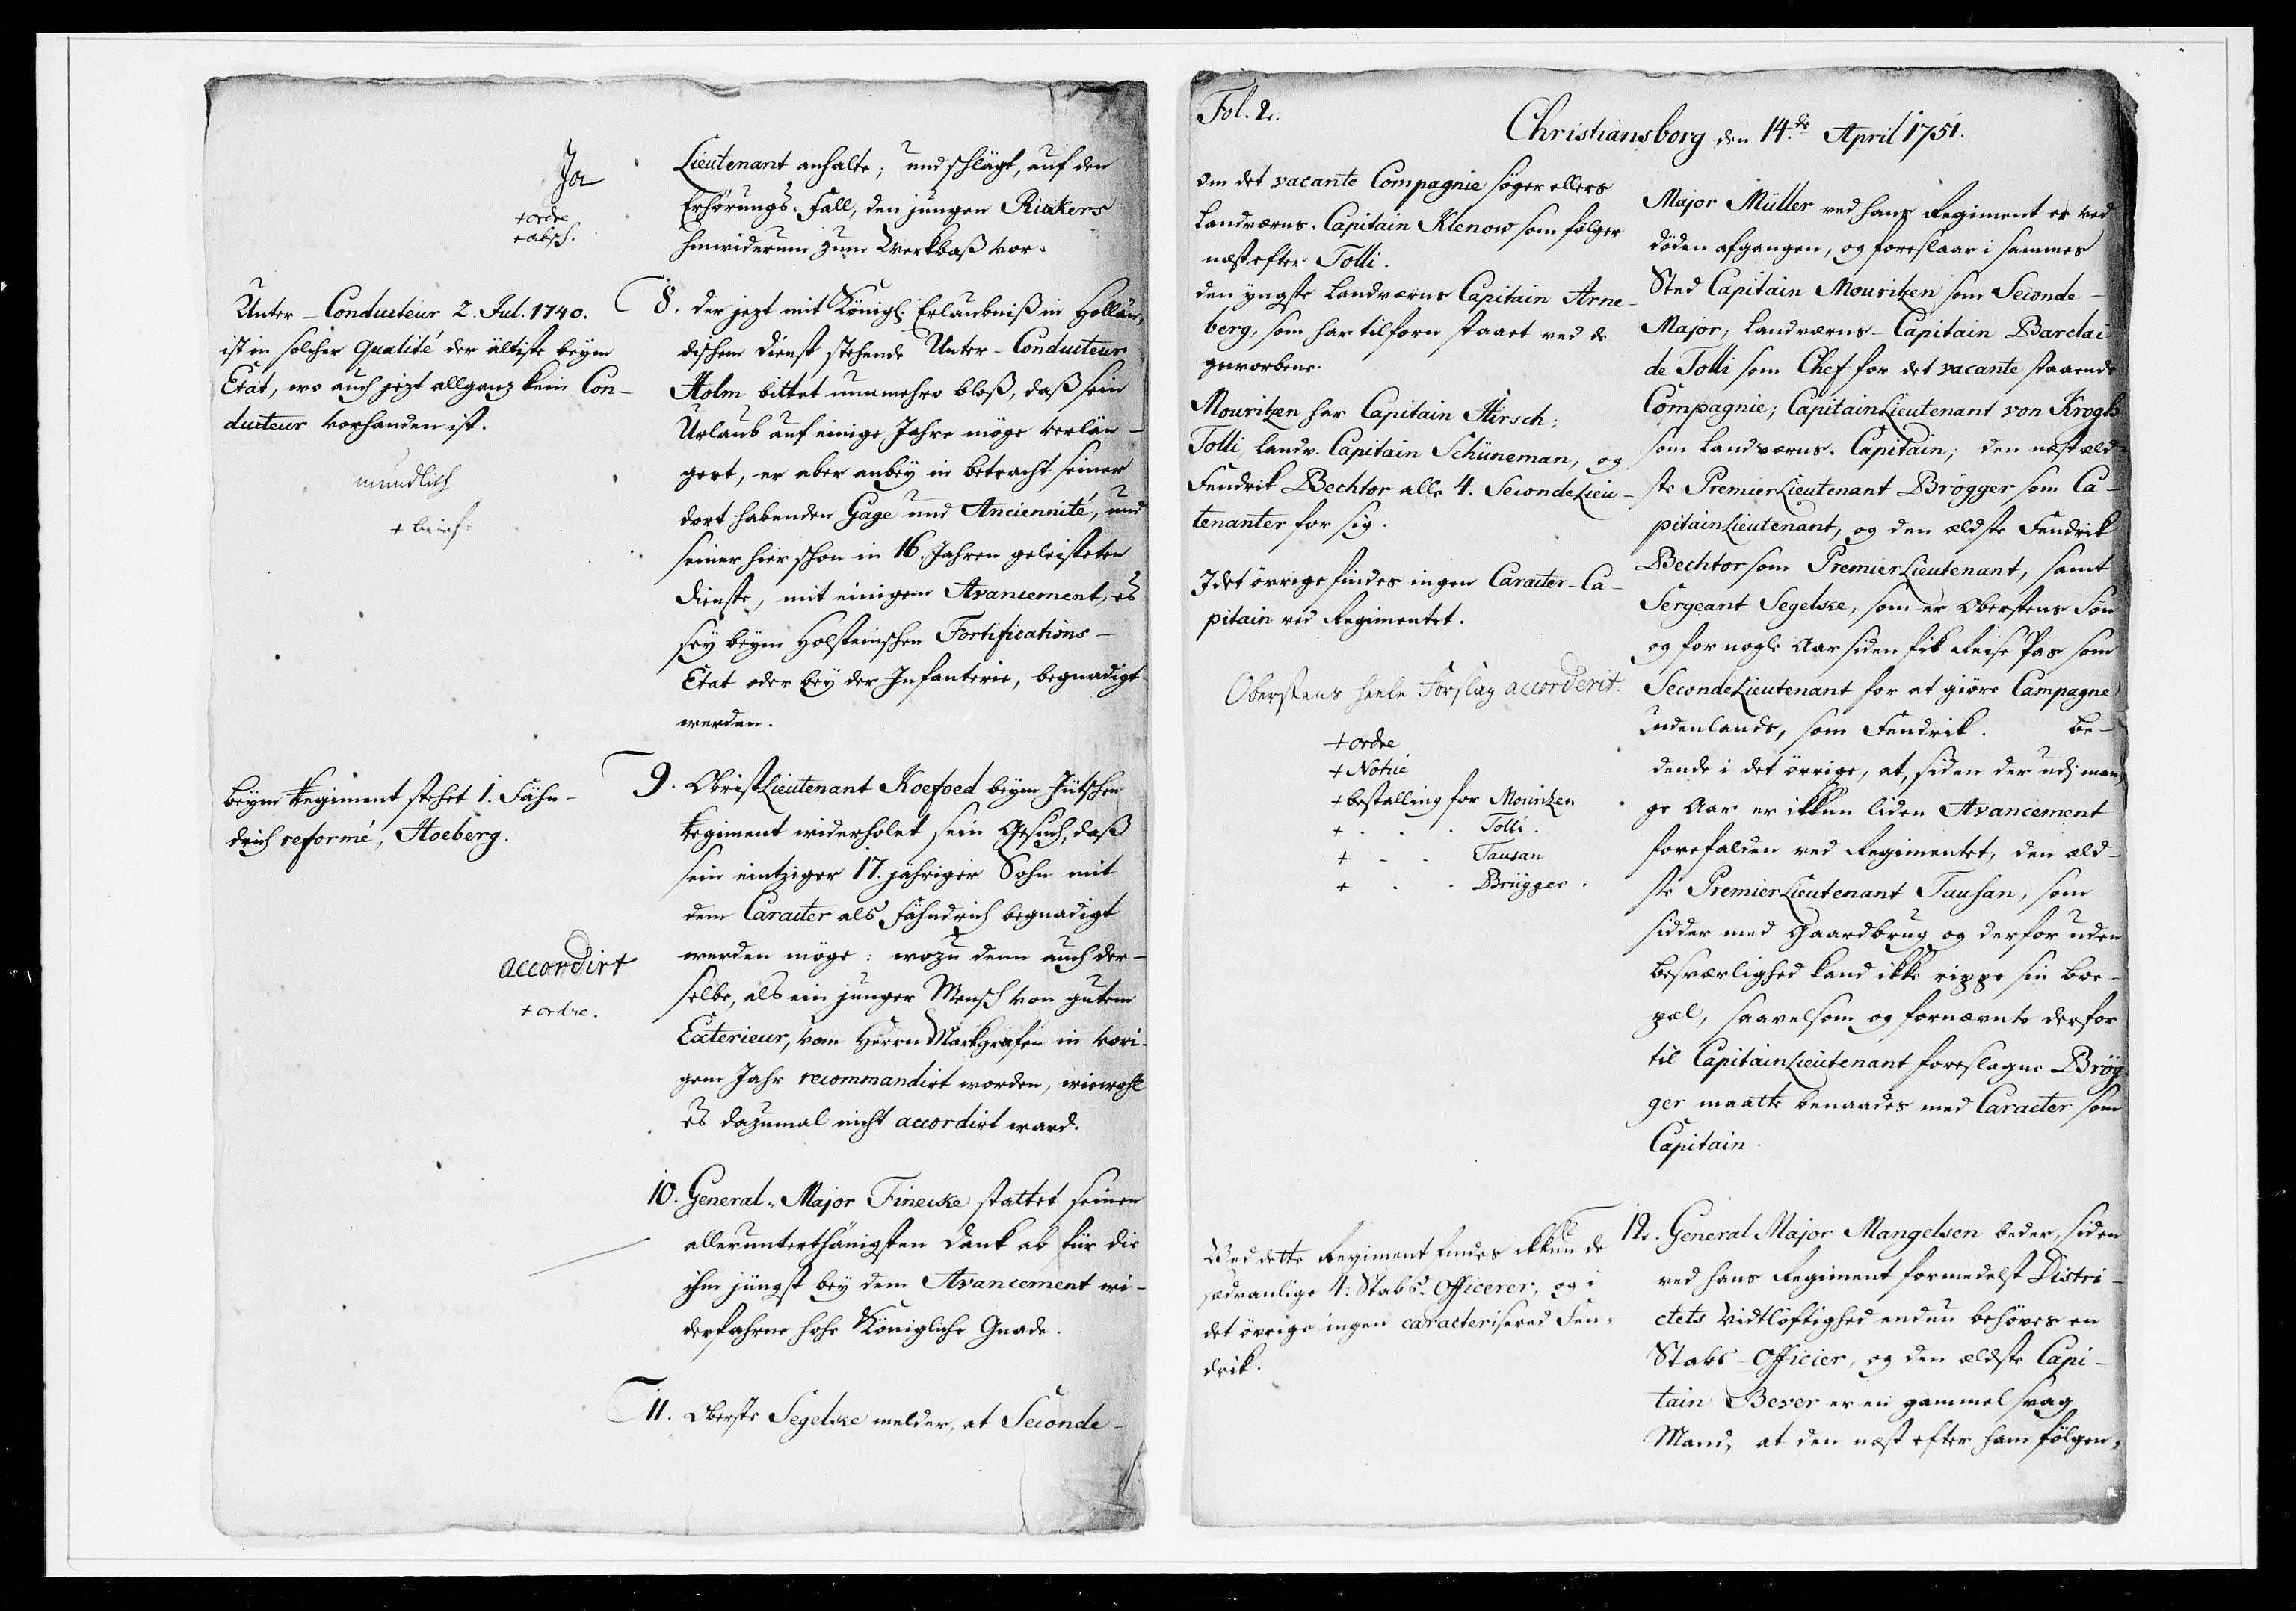 Ja
+ ordre
+ absch.
Lieutenant anhalte; und schlägt, auf den
Erhörungs-Fall, den jungen Riekers
hinwiderum zum Werkbaß vor.
Unter-Conducteur 2. Jul. 1740.
ist in solcher Qualité der ältiste beym
Etat, wo auch jezt allganz kein Con-
ducteur vorhanden ist.
mundlich
+ brief.
8. Der jezt mit Königl. Erlaubniß in Hollän-
dischem Dienst stehende Unter-Conducteur
Holm bittet nunmehro bloß, daß sein
Urlaub auf einige Jahre möge verlän-
gert, er aber anbey in betracht seiner
dort habenden Gage und Anciennité, und
seiner hier schon in 16. Jahren geleisteten
Dienste, mit einigem Avancement, es
sey beym Holsteinschen Fortifications-
Etat oder bey der Infanterie, begnadigt
werden.
beym Regiment stehet 1. Fähn-
drich reformé, Hoeberg.
accordirt
+ ordre.
9. ObristLieutenant Koefoed beym Jütschen
Regiment widerholet sein Gesuch, daß
sein eintziger 17. jähriger Sohn mit
dem Caracter als Fähndrich begnadigt
werden möge: wozu denn auch der-
selbe, als ein junger Mensch von gutem
Exterieur, vom Herrn Markgrafen in vori-
gem Jahr recommandirt worden, wiewohl
es dazumal nicht accordirt ward.
10. General-Major Finecke stattet seinen
allerunterthänigsten Dank ab für die
ihm jüngst bey dem Avancement wi-
derfahrne hohe Königliche Gnade.
11. Oberste Segelske melder, at Seconde-
Fol. 2.
Christiansborg den 14.de April 1751.
Om det vacante Compagnie søger ellers
Landværns-Capitain Klenow som følger
næst efter Tolli.
den yngste Landværns Capitain Arne-
berg, som har tilforn staaet ved de
gevorbene.
Mouritzen har Capitain Hirsch;
Tolli, Landv. Capitain Schüneman, og
Fendrik Bechtor alle 4. SecondeLieu-
tenanter for sig.
I det øvrige findes ingen Caracter-Ca-
pitain ved Regimentet.
Oberstens heele Forslag accorderit.
+ ordre
+ Notice
+ bestalling for Mouritzen
+ . . . Tolli.
+ - . Tausan
+ . . Brügger.
Major Müller ved hans Regiment er ved
døden afgangen, og foreslaar i sammes
Sted Capitain Mouritzen som Seconde-
Major; Landværns-Capitain Barclai
de Tolli som Chef for det vacante staaende
Compagnie; CapitainLieutenant von Krogh
som Landværns-Capitain; den næstæld-
ste PremierLieutenant Brögger som Ca-
pitainLieutenant, og den ældste Fendrik
Bechtor som PremierLieutenant, samt
Sergeant Segelske, som er Oberstens Søn
og for nogle Aar siden fik Reise Pas som
SecondeLieutenant for at giøre Campagne
udenlands, som Fendrik. Be-
dende i det øvrige, at, siden der udj man-
ge Aar er ikkun liden Avancement
forefalden ved Regimentet, den æld-
ste PremierLieutenant Tausan, som
sidder med Gaardbrug og derfor uden
besværlighed kand ikke rippe sin boe-
pæl, saavelsom og fornævnte derfor
til CapitainLieutenant foreslagne Brög-
ger maatte benaades med Caracter som
Capitain.
Ved dette Regiment findes ikkun de
sædvanlige 4. Stabs-Officerer, og i
det øvrige ingen caracteriseret Fen-
drik.
12. General Major Mangelsen beder, siden
ved hans Regiment formedelst Distri-
ctets Vidtløftighed endnu behøves en
Stabs-Officier, og den ældste Capi-
tain Bever er en gammel svag
Mand, at den næst efter ham følgen-